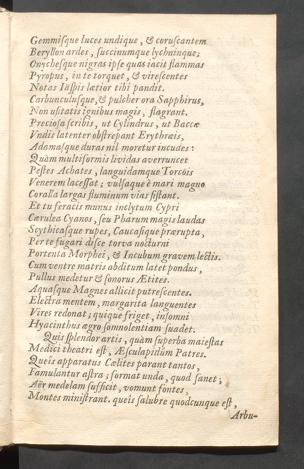 Gemmiſque luces undique, & coruſcantem
Beryllon ardes, ſuccinumque lychninque;
Onycheſque nigras ipſe quas iacit flammas
Pyropus, in te torquet, & vireſcentes
Notas Iäſpis lætior tibi pandit.
Carbunculuſque, & pulcher ora Sapphirus,
Non uſitatis ignibus magis, flagrant.
Precioſa ſcribis, ut Cylindrus, ut Baccæ
Vndis latenter obſtrepant Erythræis,
Adamaſque duras nil moretur incudes:
Quàm multiformis lividas averruncet
Peſtes Achates, languidamque Torcöis
Venerem laceſſat; vulſaque è mari magno
Coralla largas fluminum vias ſiſtant.
Et tu feracis munus inclytum Cypri
Cærulea Cyanos, ſeu Pharum magis laudas
Scythicaſque rupes, Caucaſique prærupta,
Per te fugari diſce torva nocturni
Portenta Morphei, & Incubum gravem lectis.
Cum ventre matris abditum latet pondus,
Pullus medetur & ſonorus Ætites.
Aquaſque Magnes allicit putreſcentes.
Electra mentem, margarita languentes
Vires redonat; quique friget, inſomni
Hyacinthus agro ſomnolentiam ſuadet.
Quis ſplendor artis, quàm ſuperba maieſtas
Medici theatri eſt, Æſculapidum Patres.
Queis apparatus Cælites parant tantos,
Famulantur aſtra; format unda, quod ſanet;
Aër medelam ſufficit, vomunt fontes,
Montes miniſtrant. queis ſalubre quodcunque eſt,
Arbu-